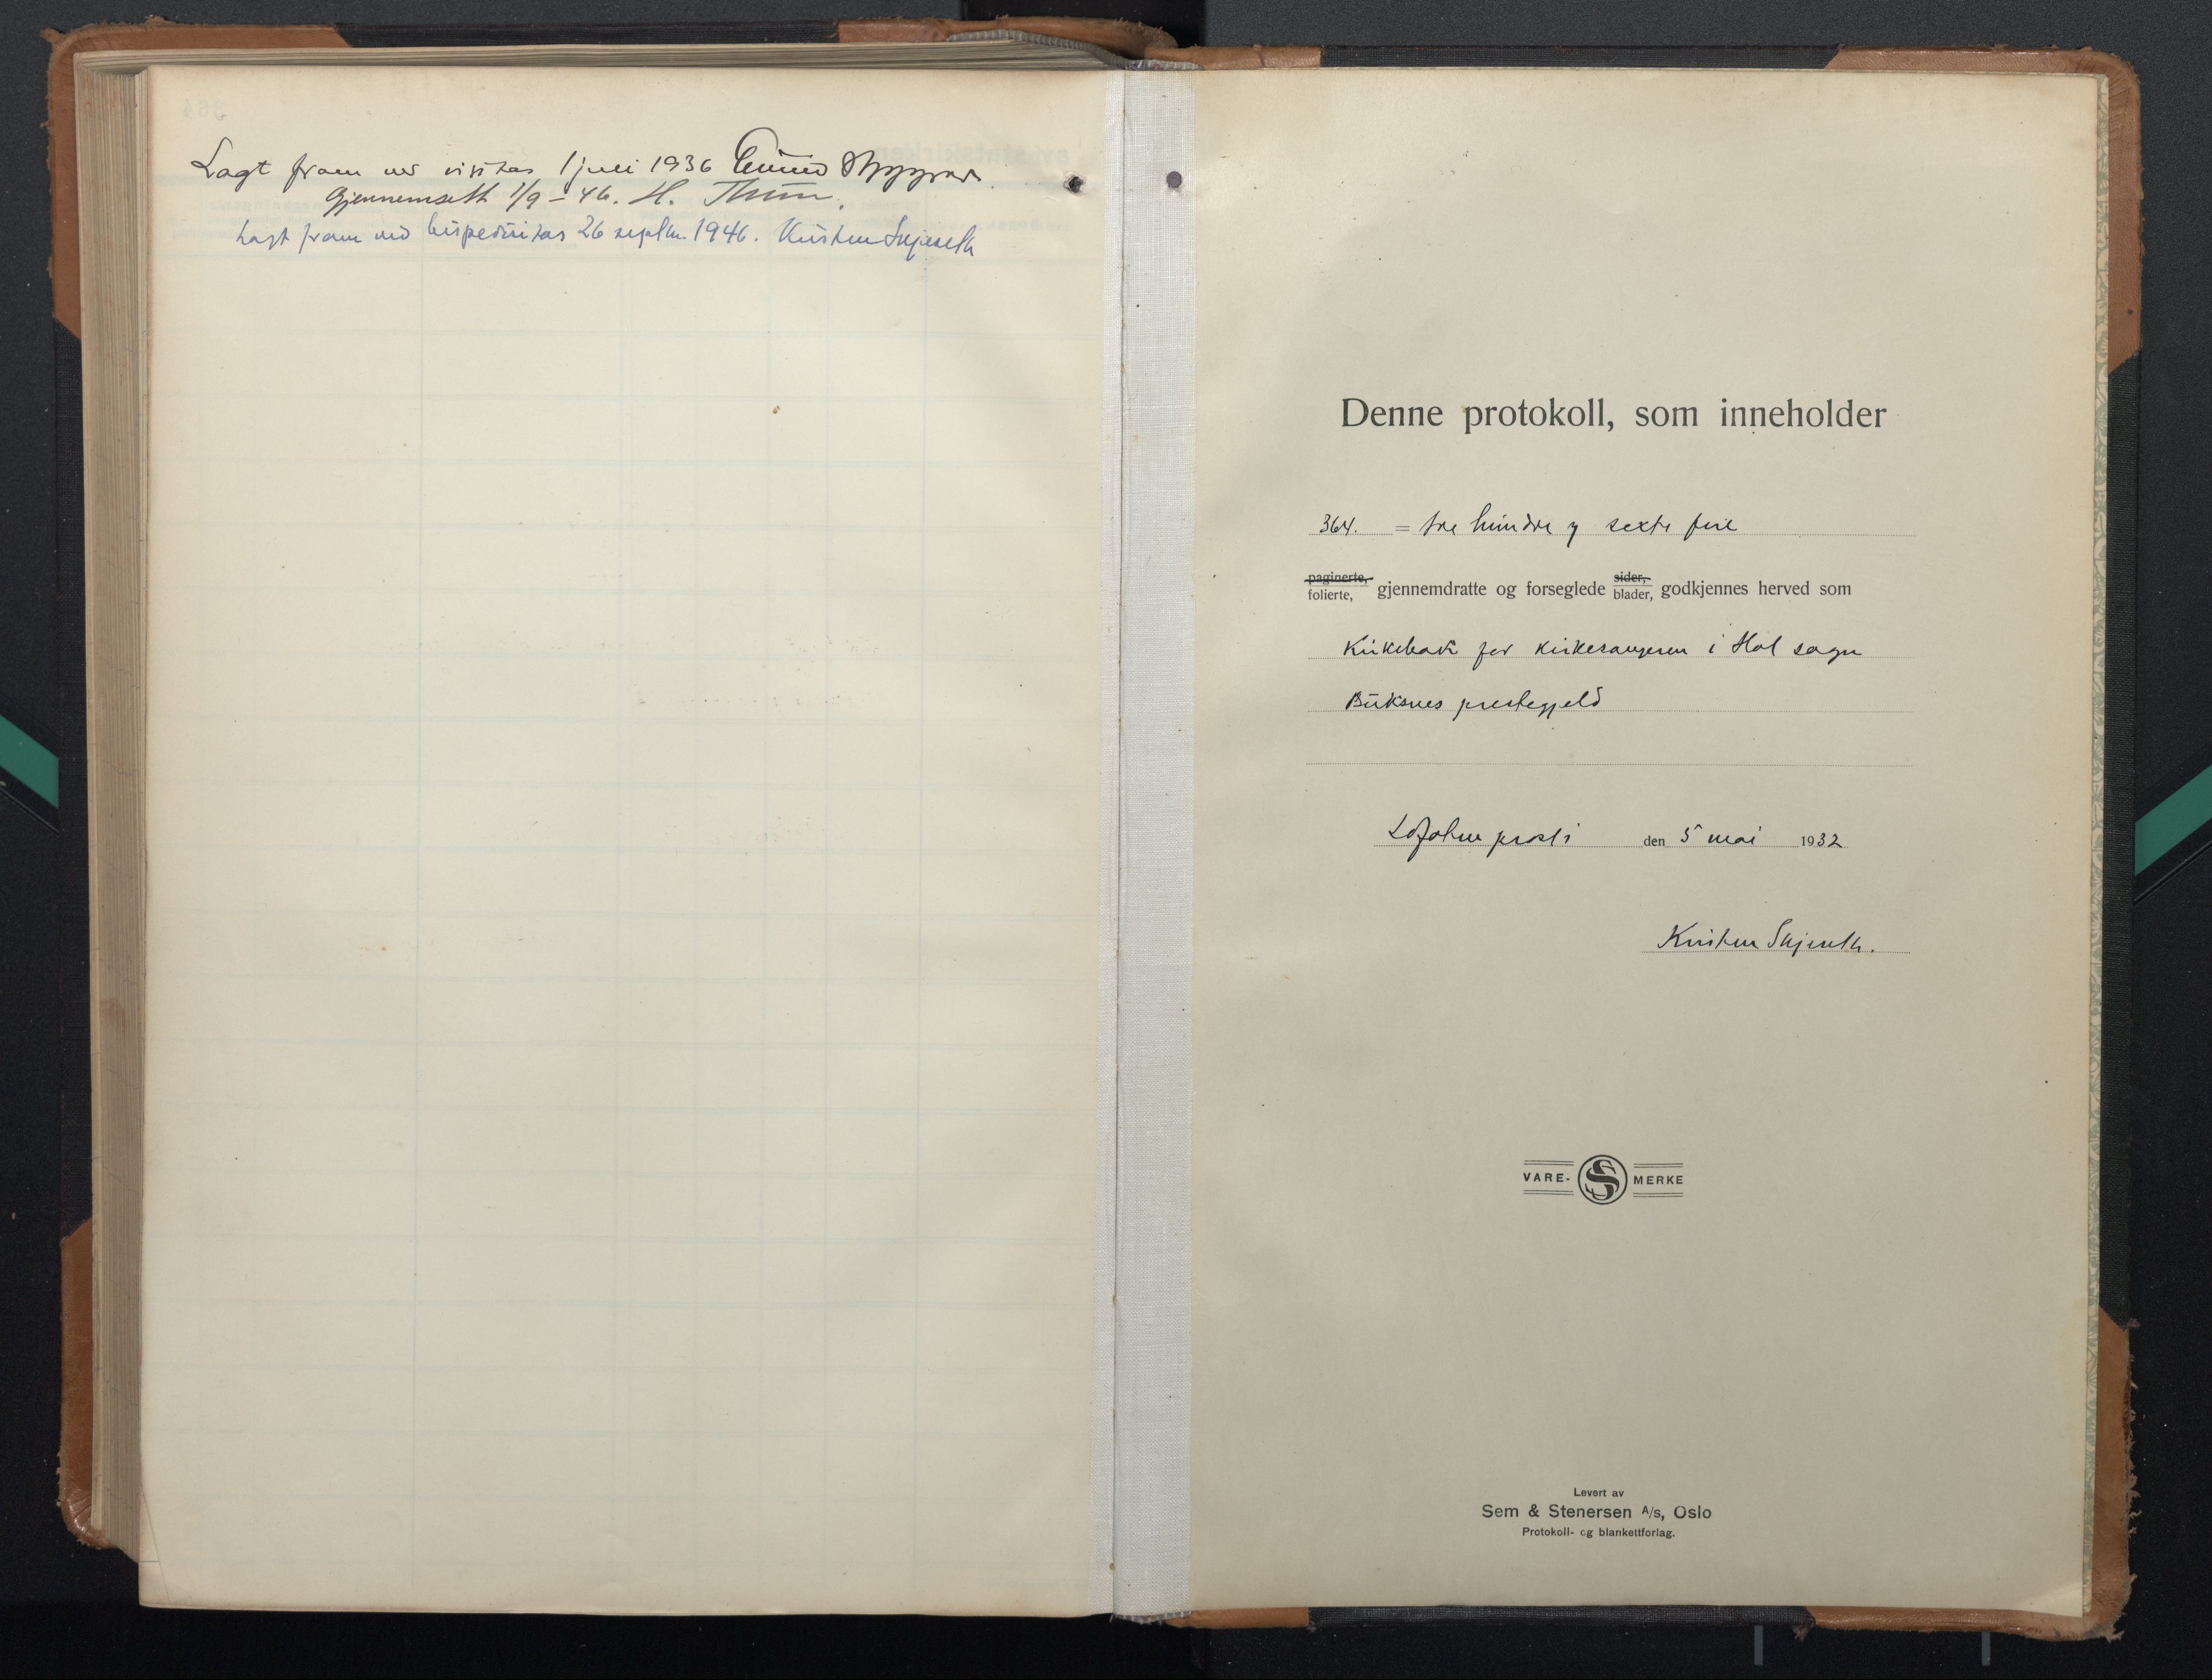 Lagt fram ved visitas 1 juli 1936 Eivind Berggrav.
Gjennemsett 1/9 - 46. H. Thun.
Lagt fram ved bispevisitas 26 septbr. 1946. Kristen Skjeseth
Denne protokoll, som inneholder
364. = tre hundre og sexti fire
paginerte,
folierte, gjennemdratte og forseglede sider, blader, godkjennes herved som
Kirkebok for kirkesangeren i Hol sogn
Buksnes prestegjeld
Lofoten prosti den 5 mai 1932
Kristen Skjeseth.
VARE- SS MERKE
Levert av
Sem & Stenersen A/s, Oslo
Protokoll- og blankettforlag.